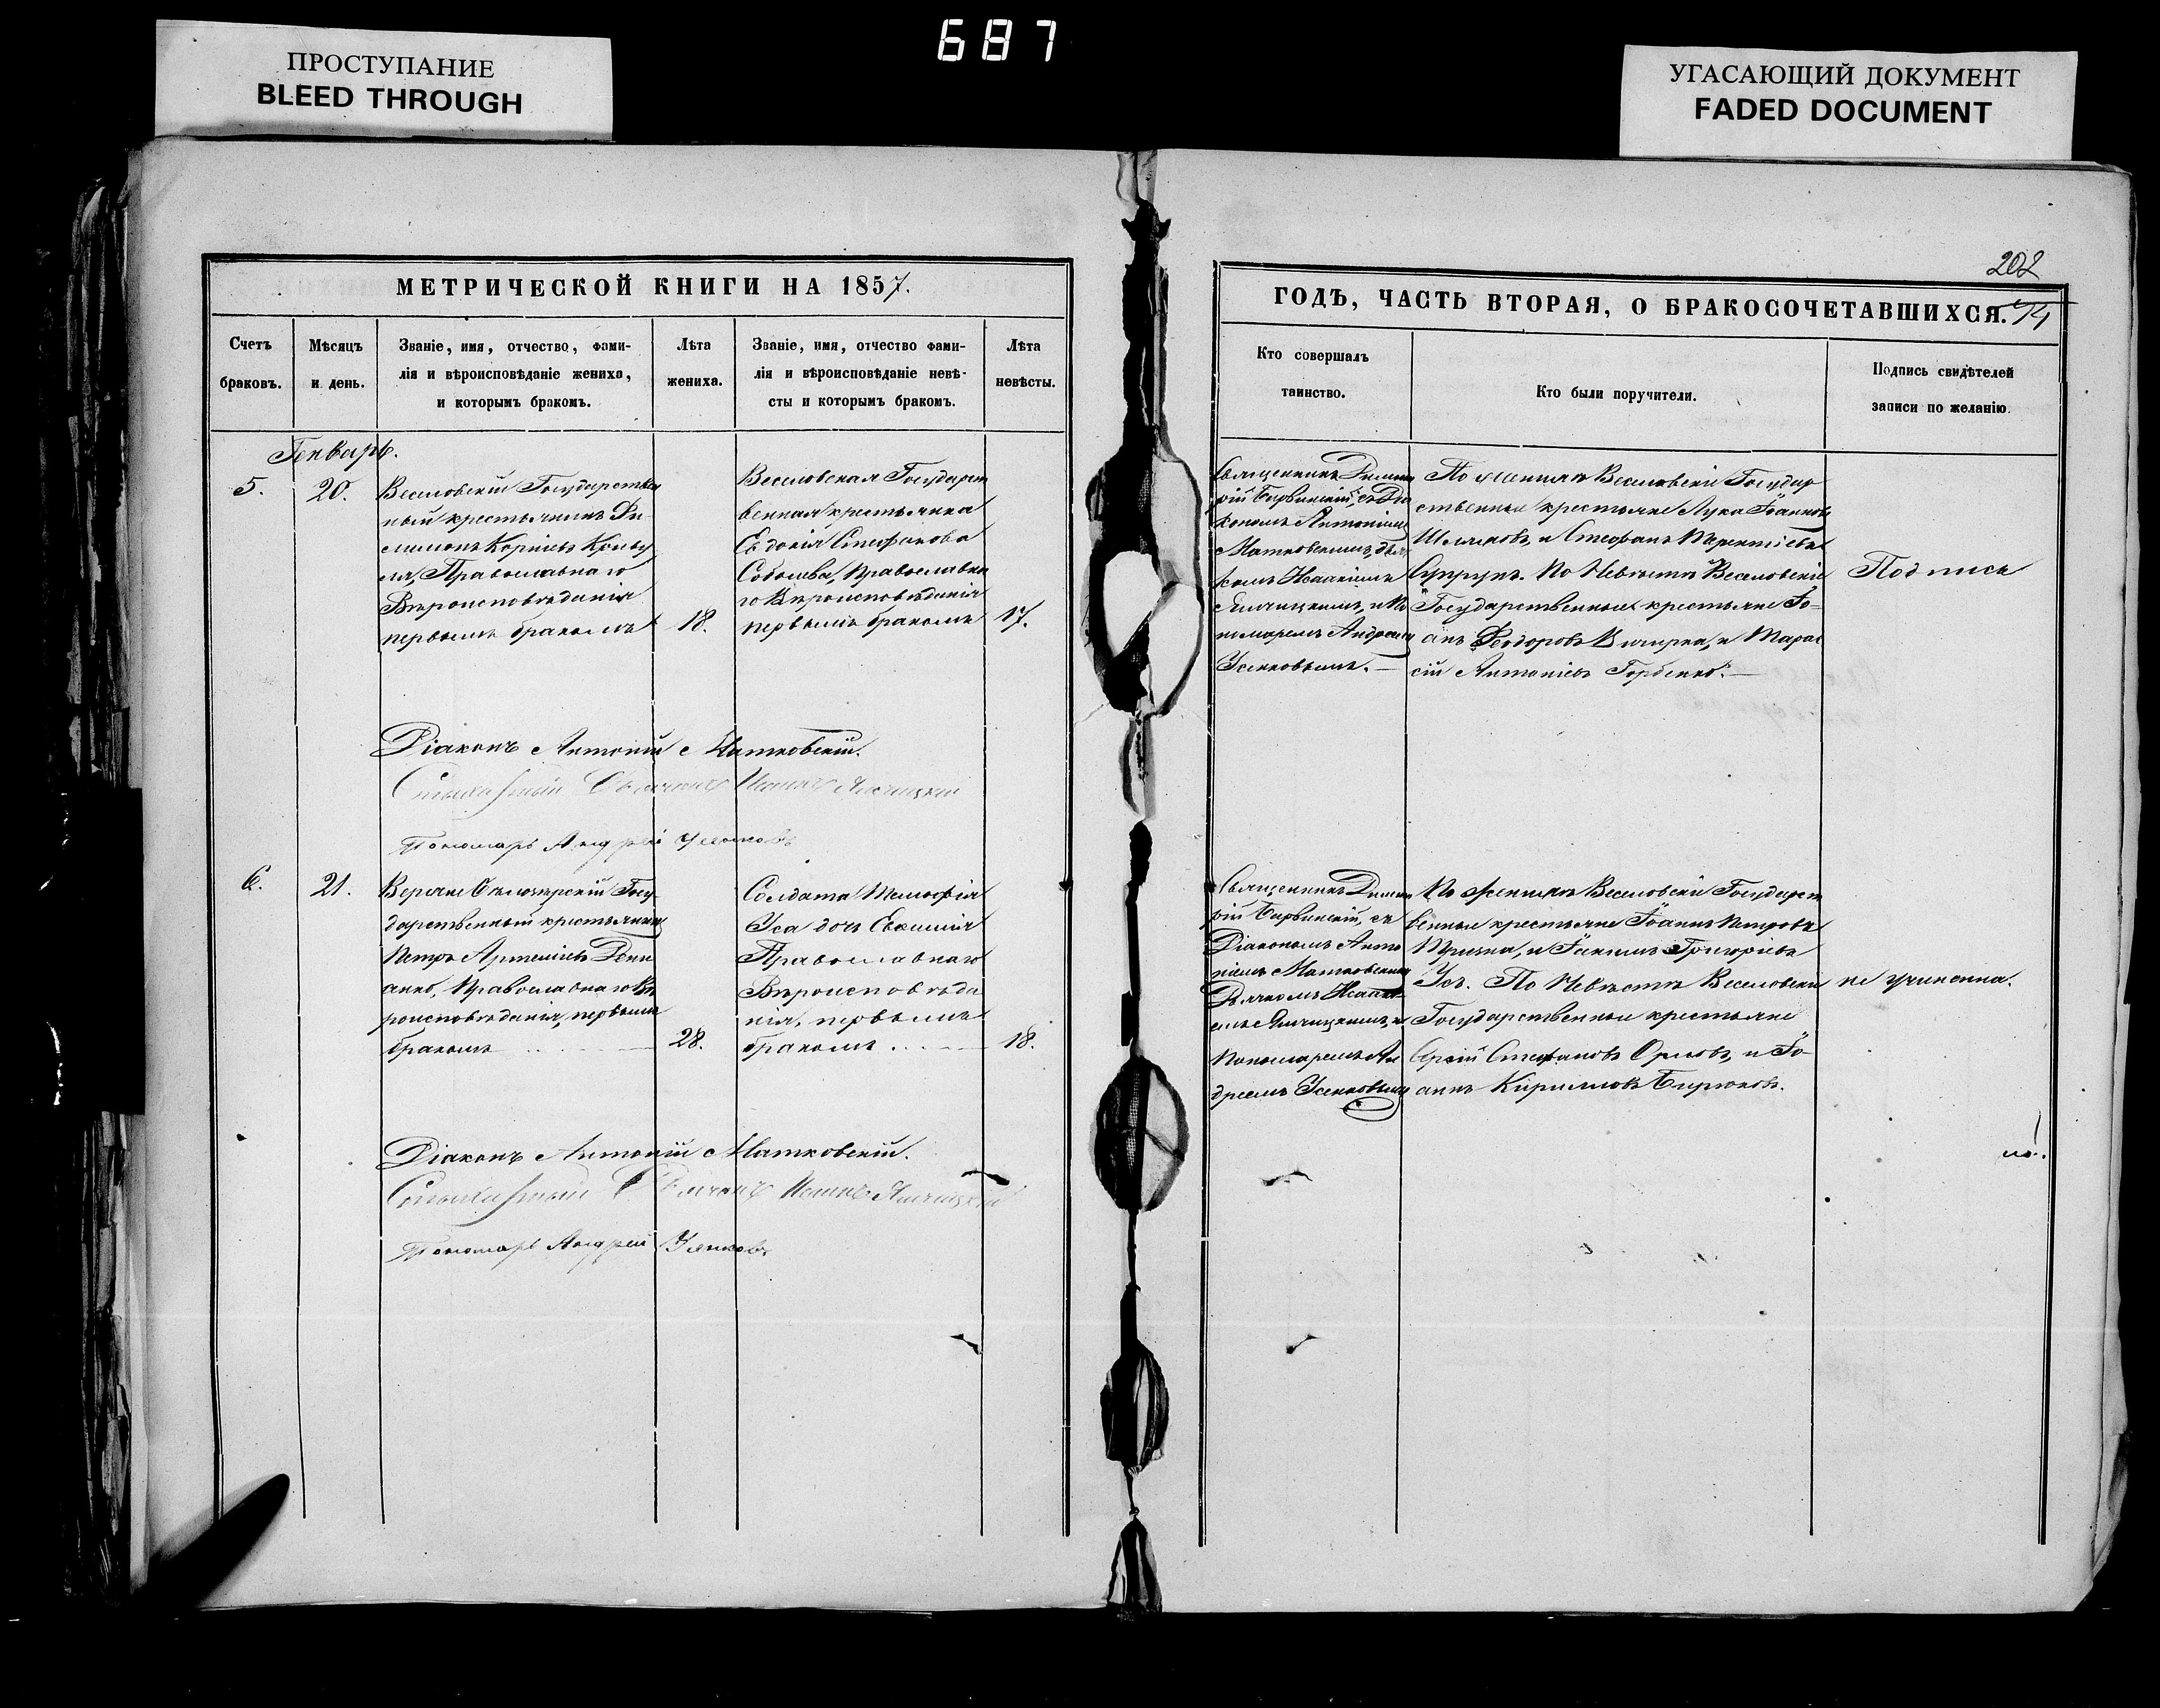 687
ПРОСТУПАНИЕ
BLEED THROUGH
УГАСАЮЩИЙ ДОКУМЕНТ
FADED DOCUMENT
202
МЕТРИЧЕСКОЙ КНИГИ НА 1857.
Счетъ
браковъ.
Мѣсяцъ
и день.
Званіе, имя, отчество, фами-
лія и вѣроисповѣданіе жениха,
и которымъ бракомъ.
Лѣта
жениха.
Званіе, имя, отчество фами-
лія и вѣроисповѣданіе невѣ-
сты и которымъ бракомъ.
Лѣта
невѣсты.
Генварь.
5.
20.
Веселовскій Государствен
ный крестьянинъ Фи-
лимонъ Корніевъ
Православнаго
Вѣроисповѣданія
первымъ бракомъ
18.
Веселовская Государст
венная крестьянка
Евдокія Стефанова
Православна
го Вѣроисповѣданія
первымъ бракомъ
17.
Діаконъ Антоній Матковскій.
Пономарь Андрей Усенковъ
6.
21.
Верхне Бѣлозерскій Госу-
дарственный крестьянинъ
Петръ Артеміевъ
Православнаго Вѣ
роисповѣданія, первымъ
бракомъ
28.
Солдата Тимофія
Уса дочь Евфимія
Православнаго
Вѣроисповѣда
нія, первымъ
бракомъ
18.
Діаконъ Антоній Матковскій.
Пономарь Андрей Усенковъ
ГОДѢ, ЧАСТЬ ВТОРАЯ, О БРАКОСОЧЕТАВШИХСЯ. 74
Кто совершалъ
таинство.
Кто были поручители.
Подпись свидѣтелей
записи по желанію.
Священникъ Димит
рій съ Діа
кономъ Антоніемъ
Матковскимъ, дья
комъ
и По
номаремъ Андреемъ
Усенковымъ.
По женихѣ Веселовскіе Государ
ственные крестьяне Лука Іоанновъ
и Стефанъ
Супрунъ. По Невѣстѣ Веселовскіе
Государственные крестьяне Іо-
анъ Феодоровъ и Тара
сій Антоніевъ Горбенко.
Подписи
Священникъ Димит
рій съ
Діакономъ Анто
ніемъ Матковскимъ
Дьякомъ
Пономаремъ Ан
дреемъ Усенковымъ
По женихѣ Веселовскіе Государст
венные крестьяне Іоаннъ Петровъ
и Іакимъ Григоріевъ
Усъ. По Невѣстѣ Веселовскіе
Государственные крестьяне
Сергій Стефановъ Орловъ, и Іо-
аннъ Кирилловъ Бирюковъ.
не учинено.